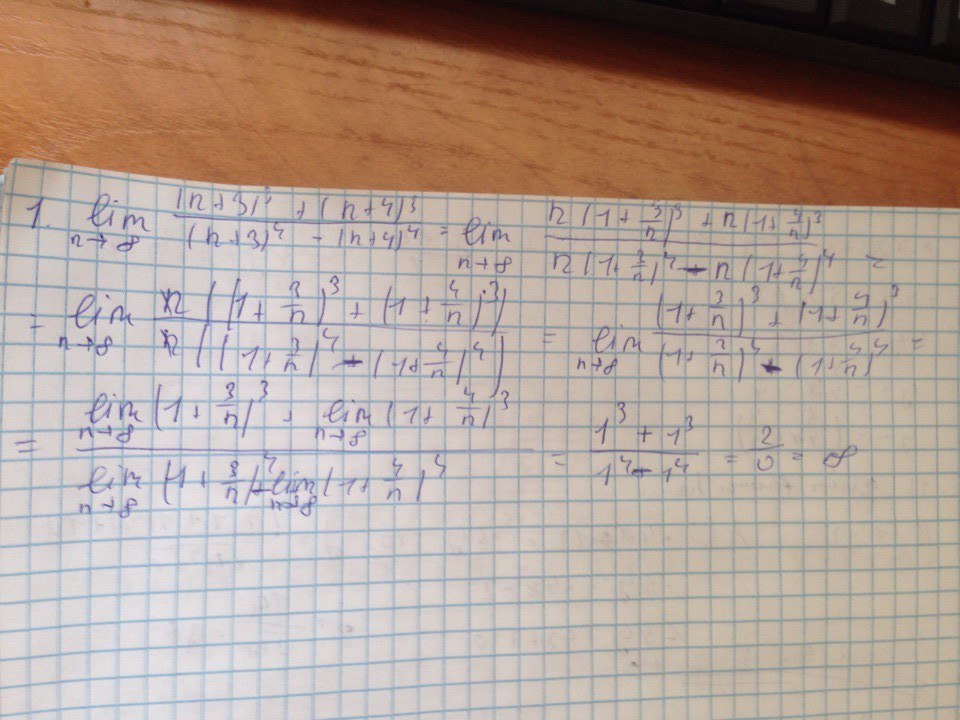 1. lim n→∞ ((n+3)³ + (n+4)³)/((n+3)⁴ - (n+4)⁴) = lim n→∞ (n(1+3/n)³ + n(1+4/n)³)/(n(1+3/n)⁴ - n(1+4/n)⁴) =
= lim n→∞ n((1+3/n)³ + (1+4/n)³)/n((1+3/n)⁴ - (1+4/n)⁴) = lim n→∞ ((1+3/n)³ + (1+4/n)³)/((1+3/n)⁴ - (1+4/n)⁴) =
= (lim n→∞ (1+3/n)³ + lim n→∞ (1+4/n)³)/(lim n→∞ (1+3/n)⁴ - lim n→∞ (1+4/n)⁴) = (1³ + 1³)/(1⁴ - 1⁴) = 2/0 = ∞